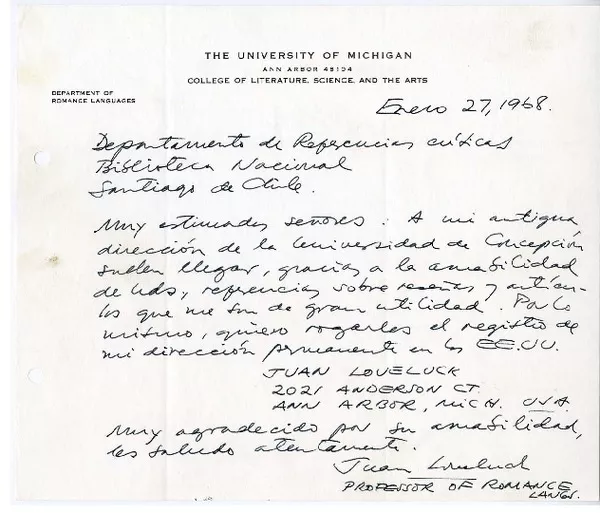 THE UNIVERSITY OF MICHIGAN
ANN ARBOR 48104
COLLEGE OF LITERATURE, SCIENCE, AND THE ARTS
DEPARTMENT OF
ROMANCE LANGUAGES
Enero 27, 1968.
Departamento de Referencias críticas
Biblioteca Nacional
Santiago de Chile.
Muy estimados señores: A mi antigua
dirección de la Universidad de Concepción
suelen llegar, gracias a la amabilidad
de Uds, referencias sobre reseñas y artícu-
los que me son de gran utilidad. Por lo
mismo, quiero rogarles el registro de
mi dirección permanente en los EE.UU.
JUAN LOVELUCK
2021 ANDERSON CT.
ANN ARBOR, MICH. USA.
Muy agradecido por su amabilidad,
les saludo atentamente.
Juan Loveluck
PROFESSOR OF ROMANCE
LANGS.